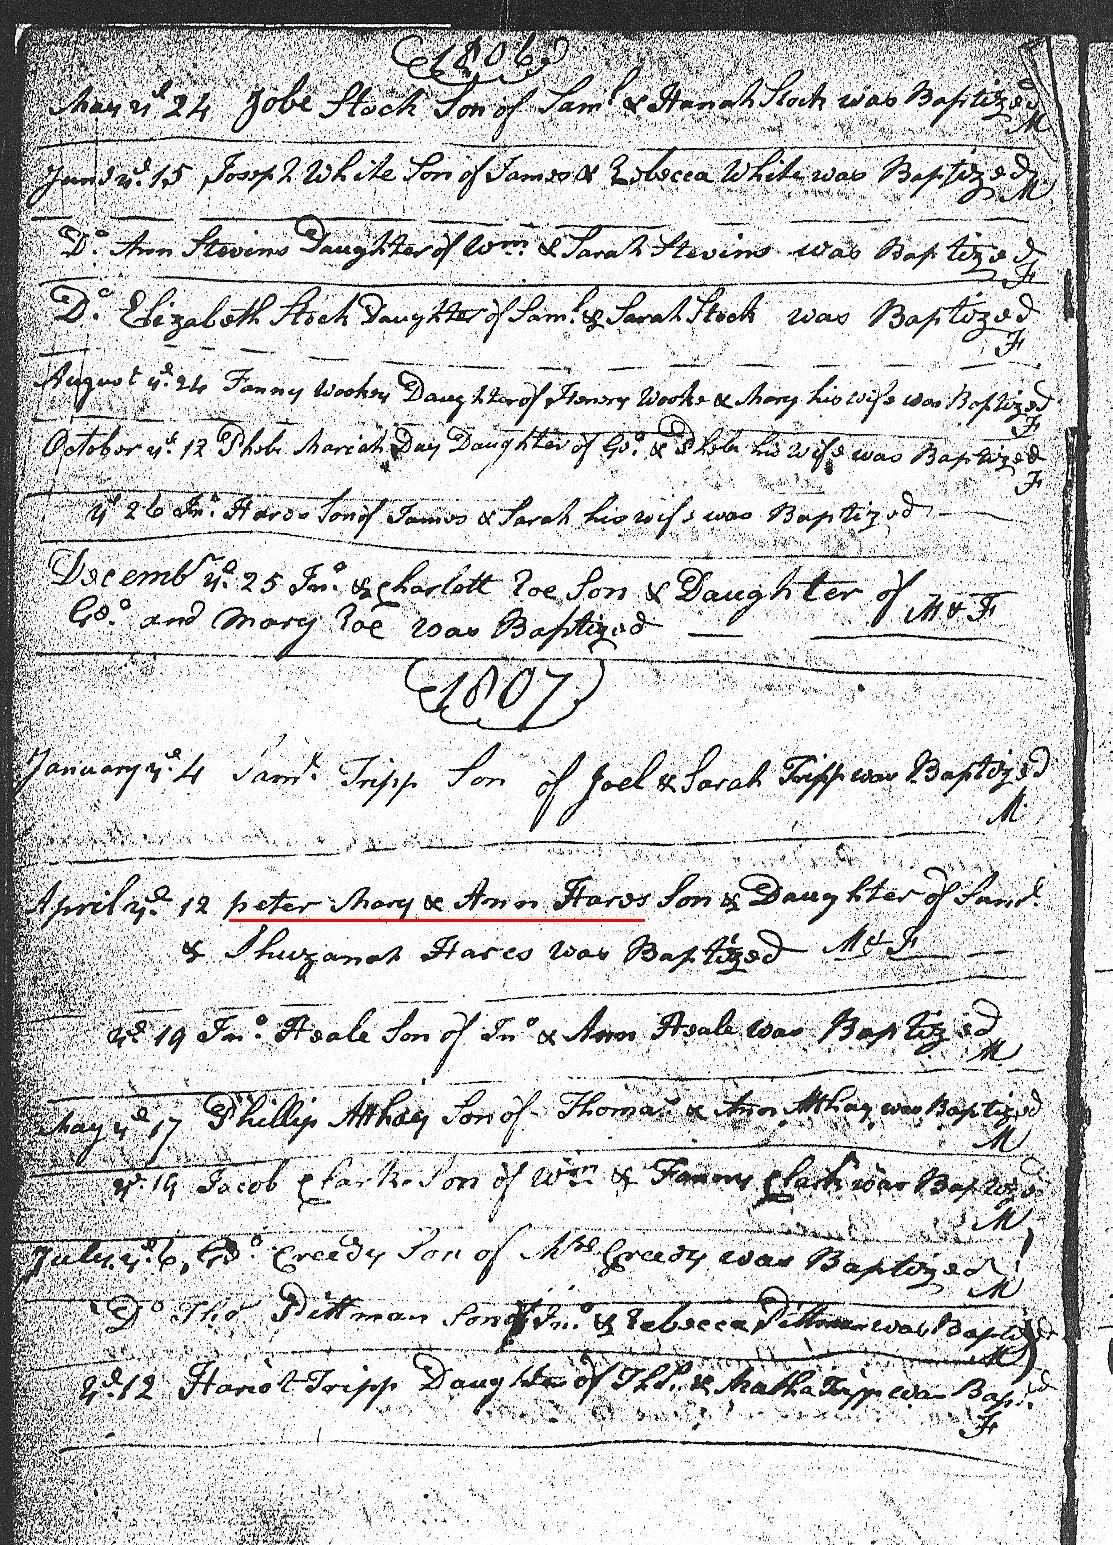 1806
May ye 24 Jobe Stock Son of Saml & Hanah Stock was Baptized
M
June ye 15 Joseph White Son of James & Rebecca White was Baptized
M
Do Ann Stevins Daughter of Wm & Sarah Stevins was Baptized
F
Do Elizabeth Stock Daughter of Saml & Sarah Stock was Baptized
F
August ye 24 Fanny Wookey Daughter of Henery Wooke & Mary his wife was Baptized
F
October ye 12 Phebe Mariah Day Daughter of Geo & Phebe his wife was Baptized
F
ye 26 Jno Hares Son of James & Sarah his wife was Baptized
Decembr ye 25 Jno & Charlott Roe Son & Daughter of
Geo and Mary Roe was Baptized M & F
1807
January ye 4 Saml Tripp Son of Joel & Sarah Tripp was Baptized
M
April ye 12 peter Mary & Ann Hares Son & Daughter of Saml
& Shuzanah Hares was Baptized M & F
ye 19 Jno Heale Son of Jno & Ann Heale was Baptized
M
May ye 17 Phillip Athay Son of Thomas & Ann Athay was Baptized
M
ye 19 Jacob Clark Son of Wm & Fanny Clark was Baptized
M
July ye 6 Geo Creedy Son of Creedy was Baptized
M
Do Tho Pittman Son of Jno & Rebecca Pittman was Baptized
M
ye 12 Hariot Tripp Daughter of Tho & Matha Tripp was Bapd
F